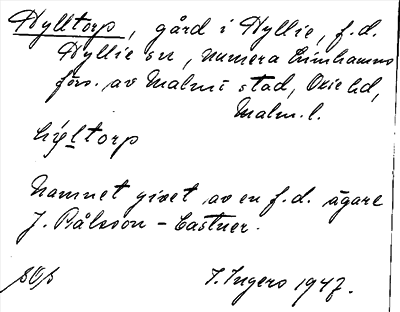 Hylltorp, gård i Hyllie, f.d.
Hyllie sn, numera Limhamns
förs. av Malmö stad, Oxie hd,
Malm. l.
hýltorp
Namnet givet av en f.d. ägare
J. Pålsson - Castner.
I. Ingers 1947.